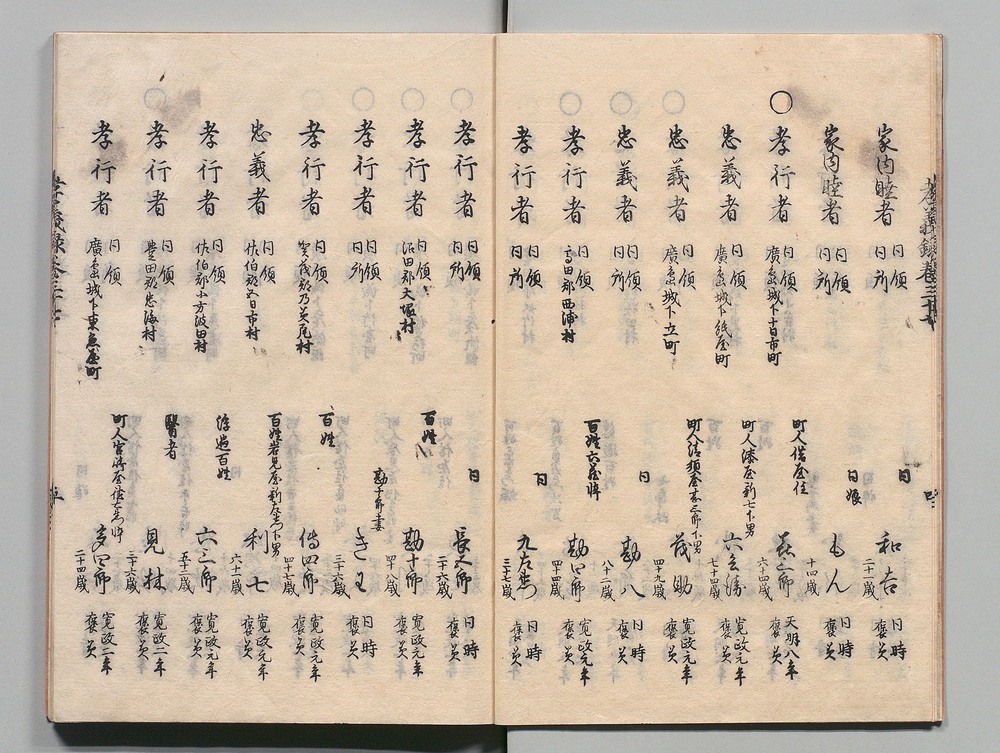 家内睦者 同領同所 同 和吉 二十一歳 同時褒美
家内睦者 同領同所 同娘 もん 十四歳 同時褒美
○孝行者 同領廣島城下十日市町 町人借屋住 六十四歳 天明八年褒美
忠義者 同領廣島城下紙屋町 町人漆屋新七下男 七十四歳 寛政元年褒美
○忠義者 同領廣島城下立町 茂助 四十九歳 寛政元年褒美
○忠義者 同領同所 同 勘八 八十二歳 同時褒美
○孝行者 同領高田郡西浦村 百姓六蔵悴 勘四郎 四十四歳 寛政元年褒美
孝行者 同領同所 同 九左衛門 三十七歳 同時褒美
○孝行者 同領同所 同 二十六歳 同時褒美
○孝行者 同領沼田郡大塚村 百姓 勘十郎 四十八歳 寛政元年褒美
○孝行者 同領同所 勘十郎妻 三十六歳 同時褒美
○孝行者 同領賀茂郡乃美尾村 百姓 傳四郎 四十七歳 寛政元年褒美
忠義者 同領佐伯郡五日市村 百姓岩見屋新左衛門下男 利七 六十二歳 寛政元年褒美
孝行者 同領佐伯郡小方波田村 浮過百姓 六三郎 五十二歳 寛政元年褒美
○孝行者 同領豊田郡忠海村 醫者 見林 三十六歳 寛政二年褒美
孝行者 同領廣島城下東魚屋町 町人宮崎屋 二十四歳 寛政二年褒美
孝義録巻三十七